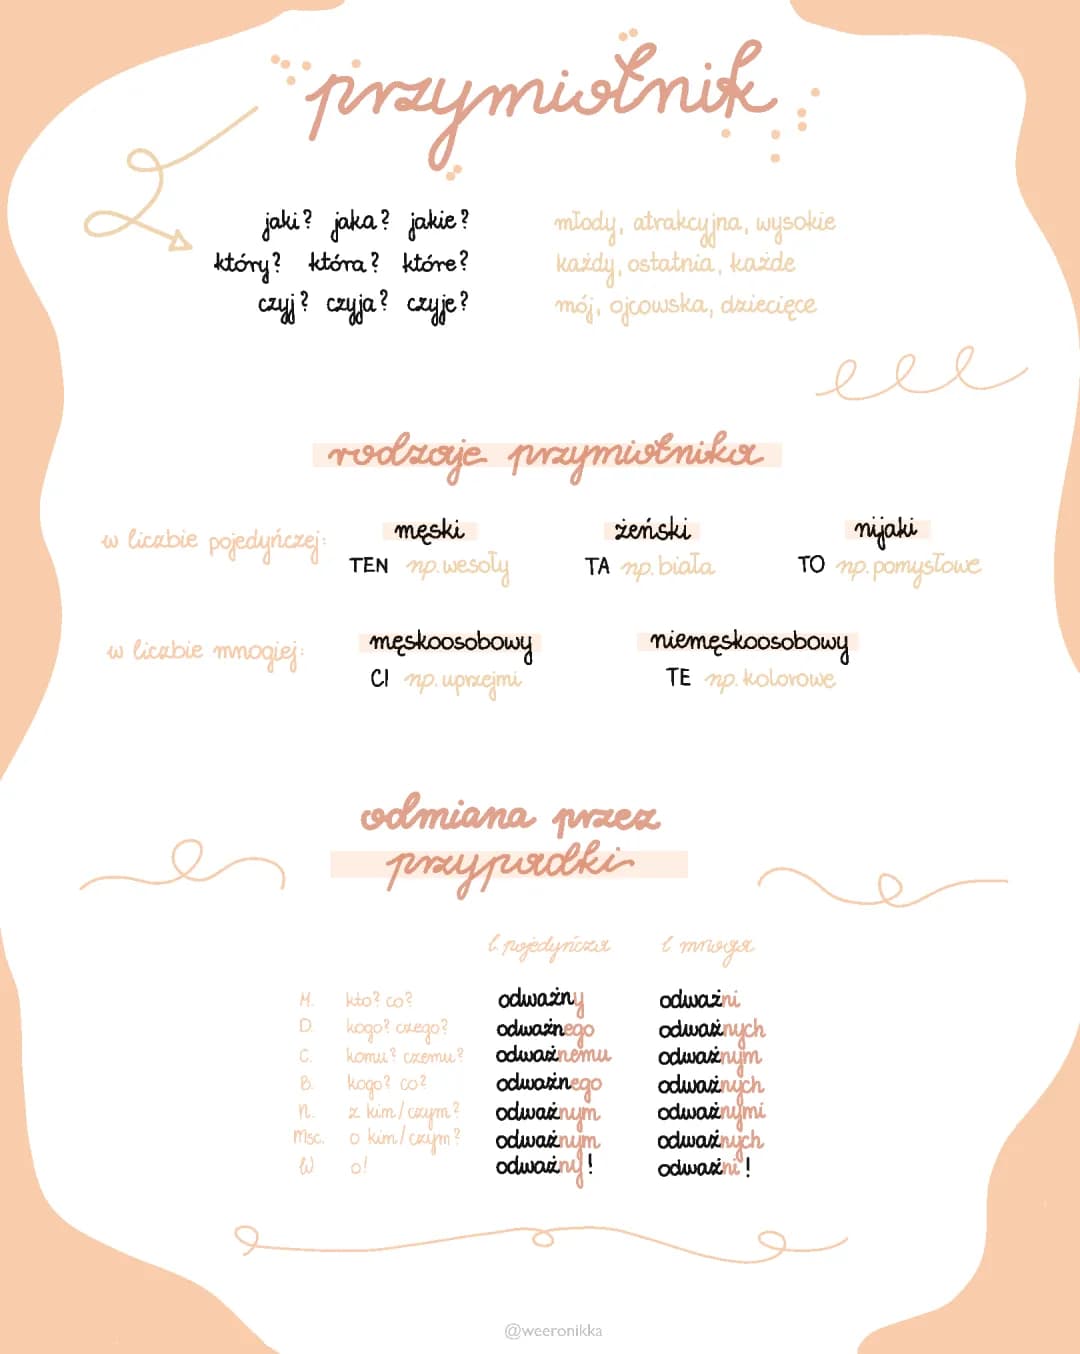 przymiotnik
jaki? jaka? jakie? młody, atrakcyjna, wysokie
który? która? które? każdy, ostatnia, każde
czyj? czyja? czyje? mój, ojcowska, dziecięce
rodzaje przymiotnika
w liczbie pojedyńczej: męski żeński nijaki
TEN np. wesoły TA np. biała TO np. pomysłowe
w liczbie mnogiej: męskoosobowy niemęskoosobowy
CI np. uprzejmi TE np. kolorowe
odmiana przez
przypadki
l. pojedyńcza l mnoga
M. kto? co? odważny odważni
D. kogo? czego? odważnego odważnych
C. komu? czemu? odważnemu odważnym
B. kogo? co? odważnego odważnych
N. z kim/czym? odważnym odważnymi
Msc. o kim/czym? odważnym odważnych
W o! odważny! odważni!
@weeronikka